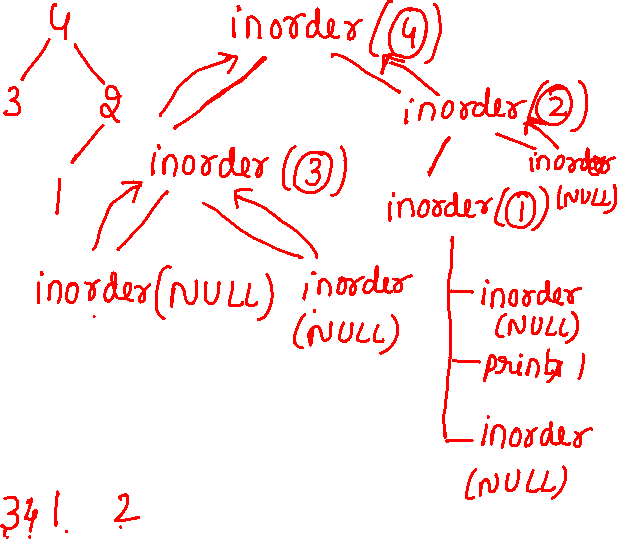 4
inorder(4)
3 2
inorder(2)
inorder(3)
inorder
(NULL)
1
inorder(1)
inorder(NULL)
inorder
(NULL)
inorder
(NULL)
print 1
inorder
(NULL)
3 4 1 2